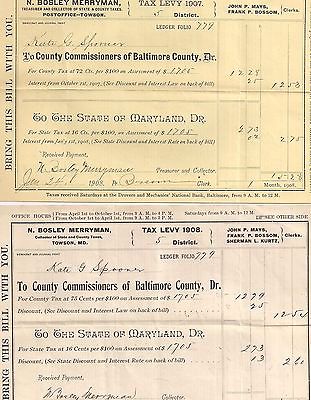 N. BOSLEY MERRYMAN,
TREASURER AND COLLECTOR OF STATE & COUNTY TAXES,
POSTOFFICE-TOWSON.
TAX LEVY 1907.
5 District.
JOHN P. MAYS,
FRANK P. BOSSOM,
Clerks.
LEDGER FOLIO 779
Kate G Spooner
To County Commissioners of Baltimore County, Dr.
For County Tax at 72 Cts. per $100 on Assessment of $ 1705
12 28
Interest from October 1st, 1907, (see Discount and Interest Law on back of bill)
25
12 53
TO THE STATE OF MARYLAND, DR.
For State Tax at 16 Cts. per $100 on Assessment of $ 1705
2 73
(See State Discount and Interest Rate on back of bill)
02
2 75
Received Payment,
15 28
N Bosley Merryman Treasurer and Collector.
1908. Bossom Clerk. Month, 1908.
Taxes received Saturdays at the Drovers and Mechanics' National Bank, Baltimore, from 9 A. M. to 12 M.
BRING THIS BILL WITH YOU.
OFFICE HOURS From April 1st to October 1st, from 9 A. M. to P. M.
From October 1st to April 1st, from 9 A. M. to P. M.
Saturdays from 9 A. M. to M.
SEE OTHER SIDE
N. BOSLEY MERRYMAN,
Collector of State and County Taxes,
TOWSON, MD.
TAX LEVY 1908.
5 District.
JOHN P. MAYS,
FRANK P. BOSSOM,
SHERMAN L. KURTZ,
Clerks.
LEDGER FOLIO 779
Kate G Spooner
To County Commissioners of Baltimore County, Dr.
For County Tax at 75 Cents per $100 on Assessment of $ 1705
12 79
Discount, (See Discount and Interest Law on back of bill)
25
12 54
To THE STATE OF MARYLAND, DR.
For State Tax at 16 Cents per $100 on Assessment of $ 1705
2 73
Discount, (See State Discount and Interest Rate on back of bill)
13
2 60
Received Payment,
N Bosley Merryman Collector.
BRING THIS BILL WITH YOU.